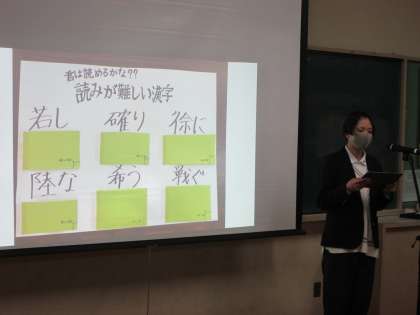 君は読めるかな??
読みが難しい漢字
若し 確り 徐に
陸な 希う 戦ぐ